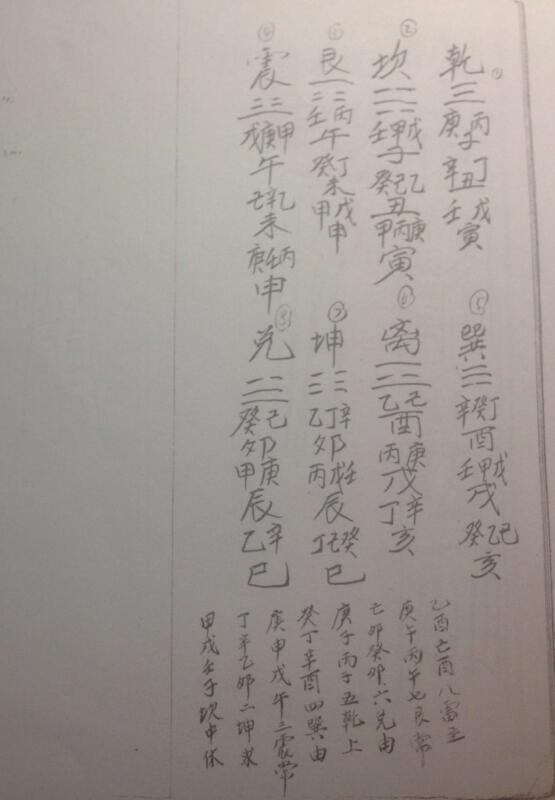 乾
庚丙子
辛丁丑
壬戊寅
坎
壬甲戊子
癸己乙丑
甲丙庚寅
艮
壬丙午
癸丁未
甲戊申
震
戊庚甲午
己辛乙未
庚壬丙申
⑤
巽
辛癸丁酉
壬甲戊戌
癸乙己亥
⑥
离
乙己酉
丙庚戌
丁辛亥
⑦
坤
乙丁辛卯
丙戊壬辰
丁己癸巳
⑧
兑
癸己卯
甲庚辰
乙辛巳
乙酉己酉八
庚午丙午七艮常
己卯癸卯六兑由
庚子丙子五乾上
癸丁辛酉四巽由
庚甲戊午三震常
丁辛乙卯二坤求
甲戊壬子坎中休